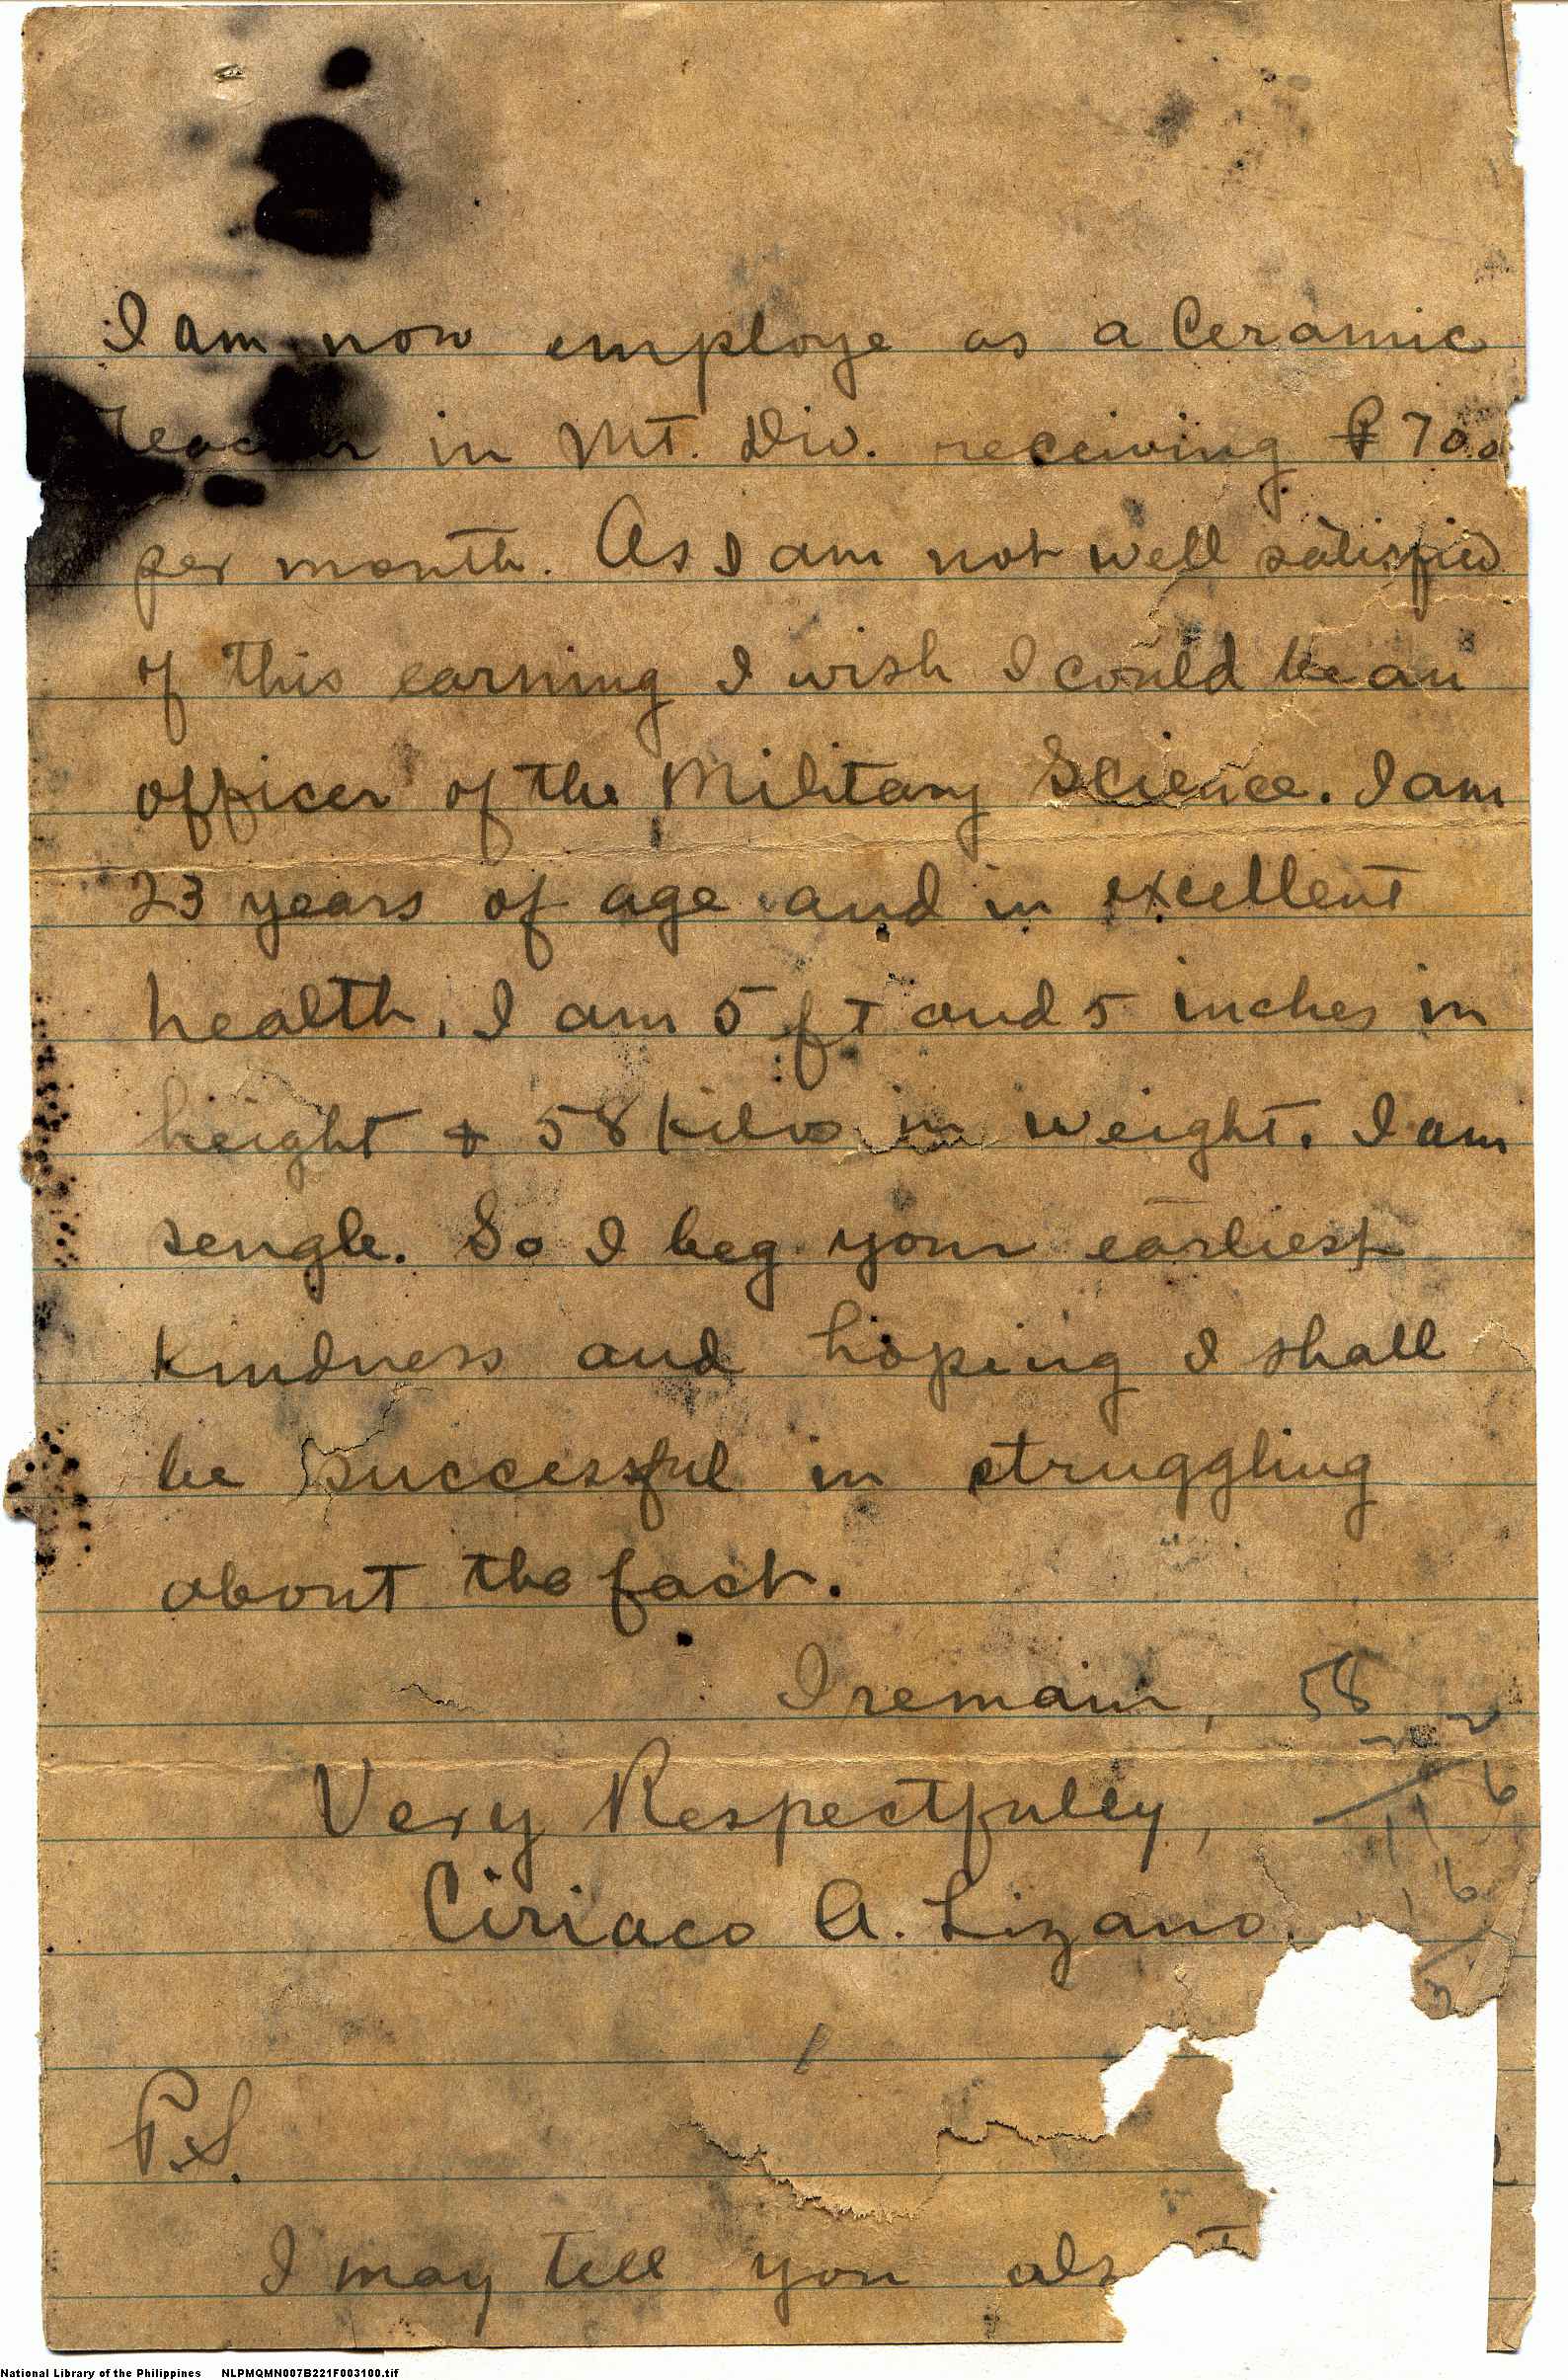 I am now employe as a Ceramic
Teacher in Mt. Div. receiving ₱ 70.0
per month. As I am not well satisfied
of this earning I wish I could be an
officer of the Military Science. I am
23 years of age and in excellent
health, I am 5 ft and 5 inches in
height & 58 kilos in weight. I am
sengle. So I beg your earliest
kindness and hoping I shall
be successful in struggling
about the fact.
I remain, 58
Very Respectfully,
Ciriaco A. Lizano.
P.S.
I may tell you als
National Library of the Philippines NLPMQMN007B221F003100.tif